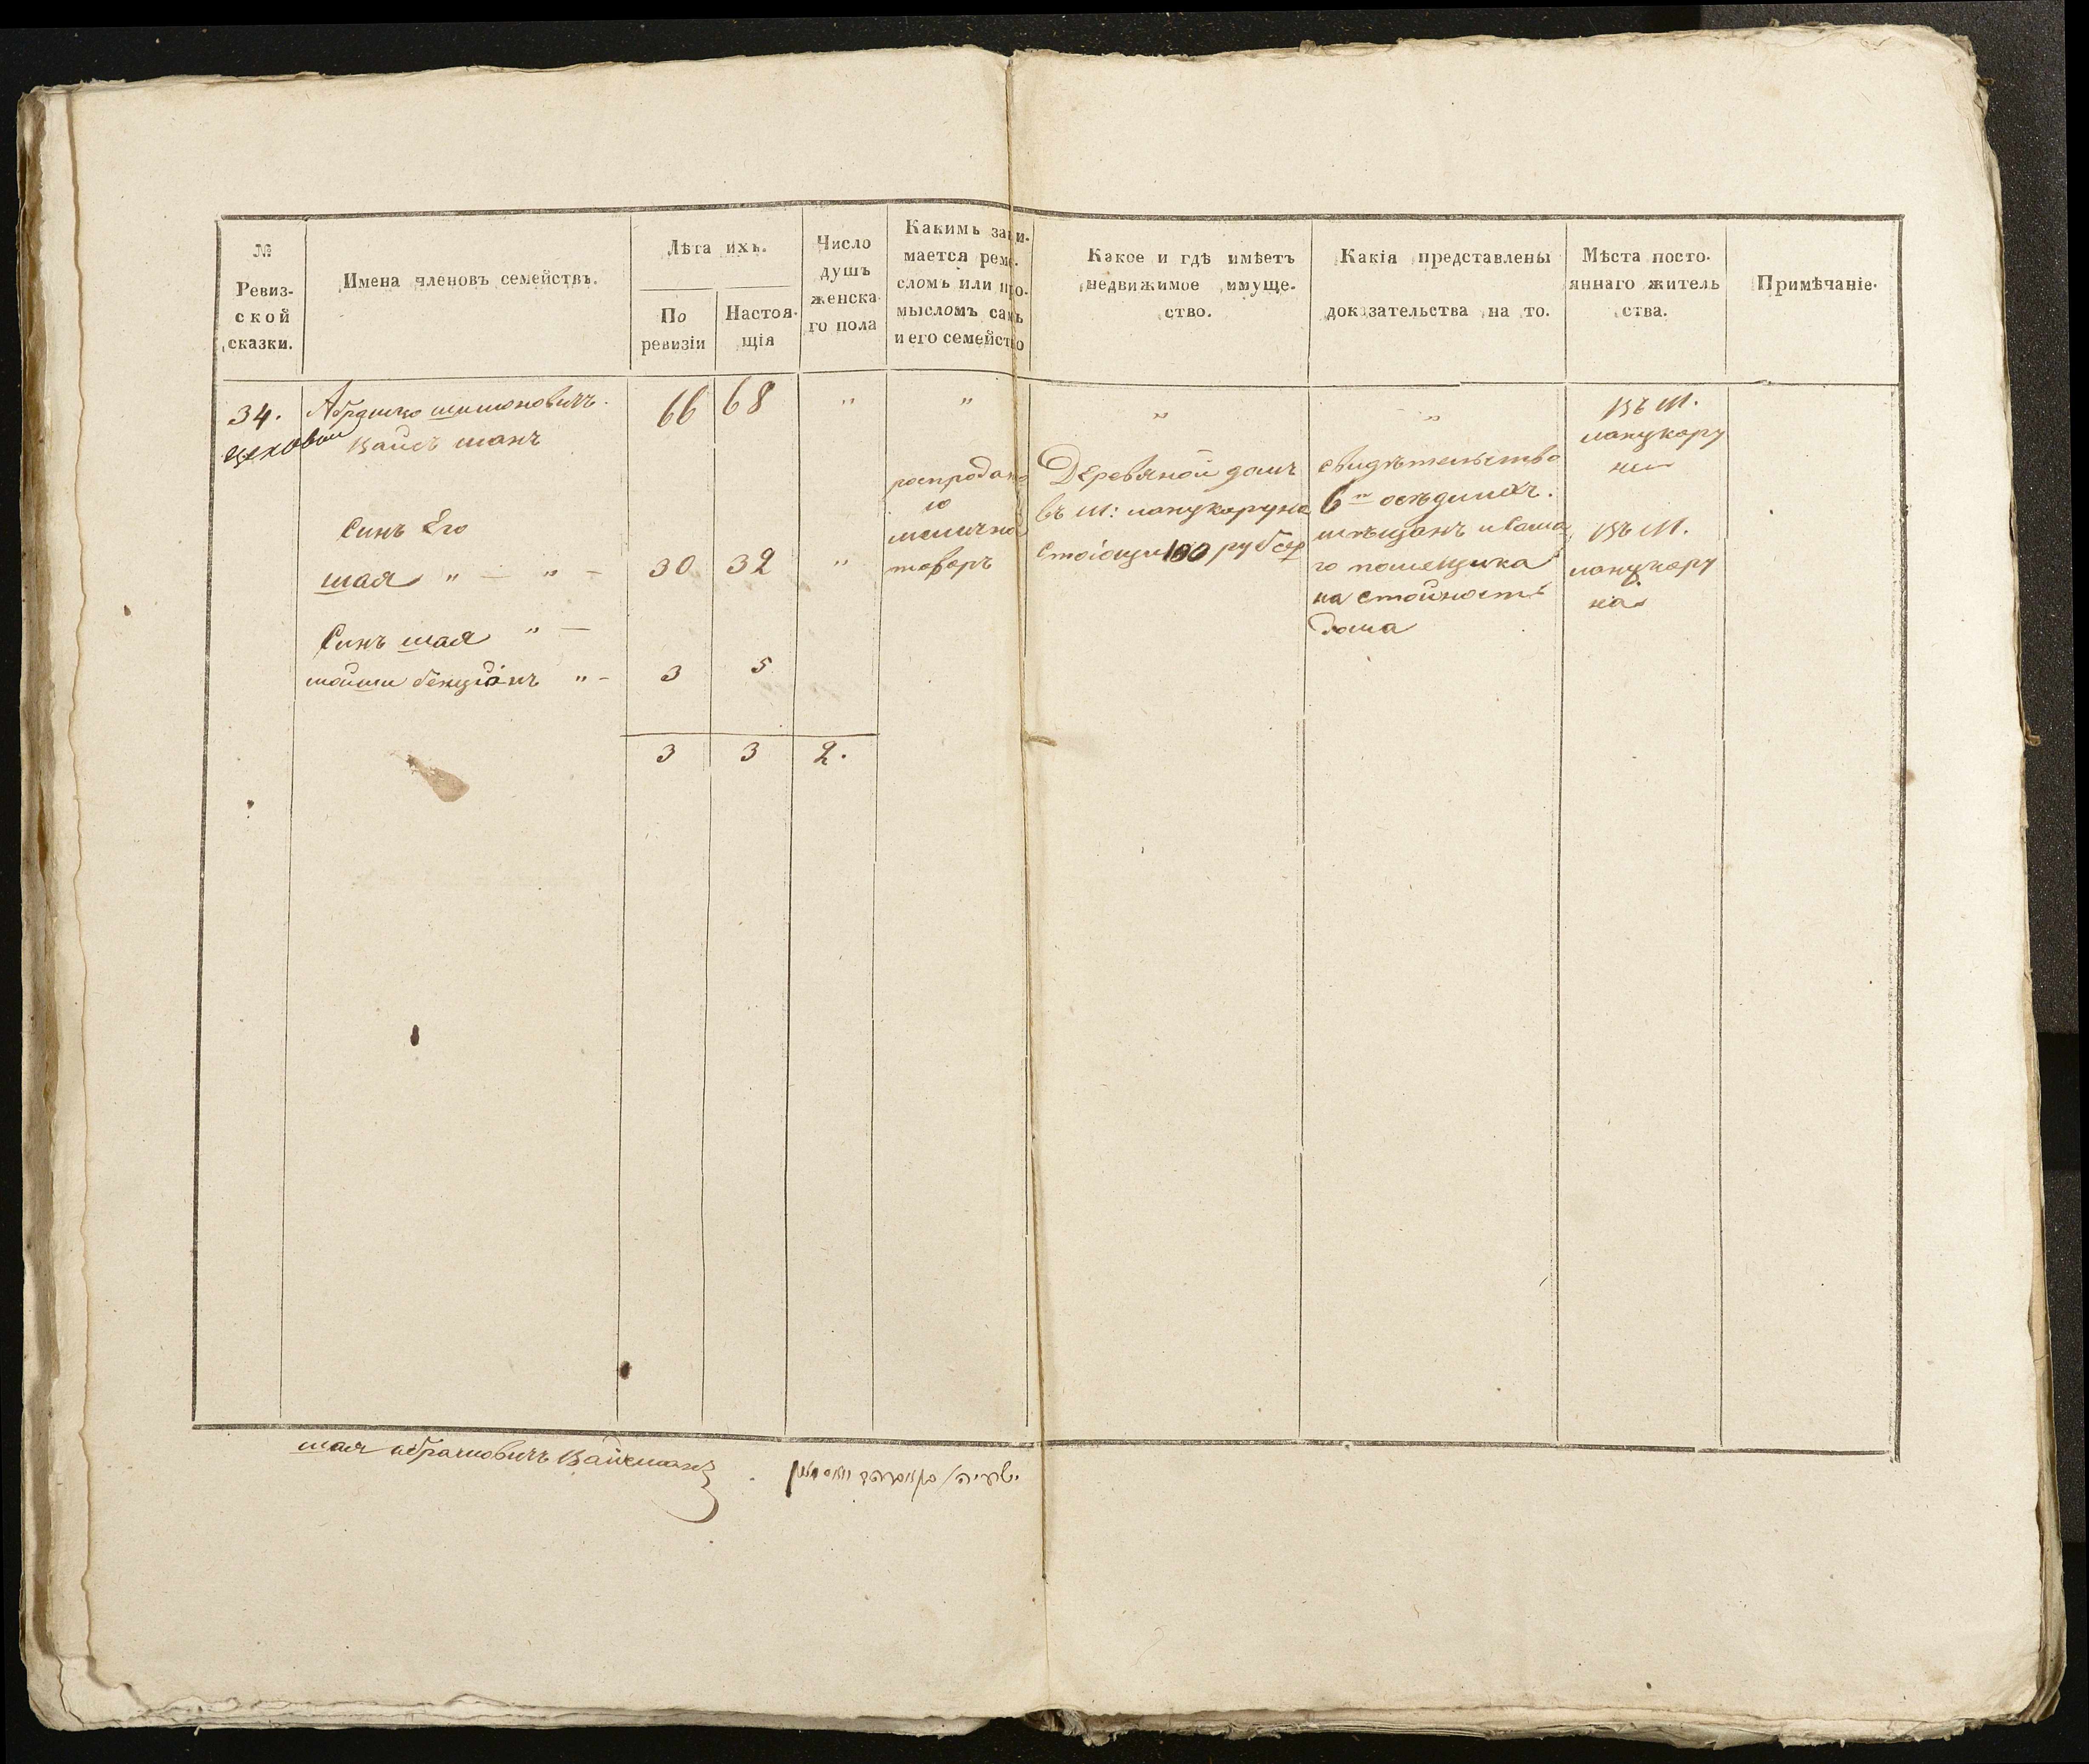 №
Ревиз-
ской
сказки.
Имена членовъ семействъ.
Лѣта ихъ.
По
ревизіи
Настоя-
щія
Число
душъ
женска-
го пола
Какимъ зани-
мается реме-
сломъ или про-
мысломъ самъ
и его семейство
Какое и гдѣ имѣетъ
недвижимое имуще-
ство.
Какія представлены
доказательства на то.
Мѣста посто-
яннаго житель
ства.
Примѣчаніе.
34.
цеховый
Абрамко шимоновичъ
Вайсъ манъ
66
68
"
"
"
"
Въ м.
ланцкору
не
Синъ Его
шая " — " —
30
32
"
роспродаже
ю
мелично
товаръ
Деревяной домъ
въ м: ланцкоруне
стоющи 100 руб сер
свидѣтельство
6 осѣдлихъ
мѣщанъ и самa
го помещика
на стойность
дома
Въ м.
ланцкору
на
Синъ шая " —
мойши бенціонъ " -
3
5
3
3
2.
шая абрамовичъ Вайсманъ